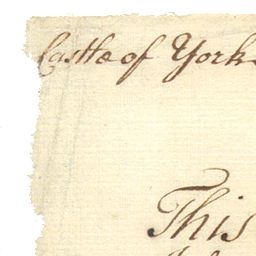 Castle of York
This